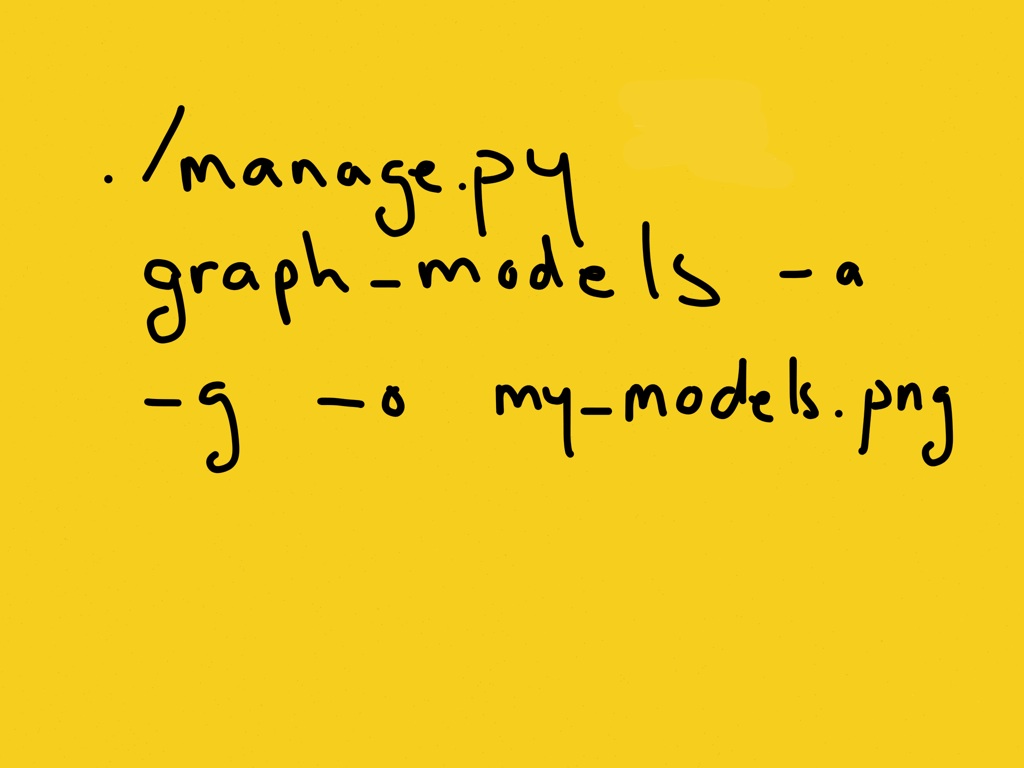 ./manage.py
graph_models -a
-g -o my_models.png